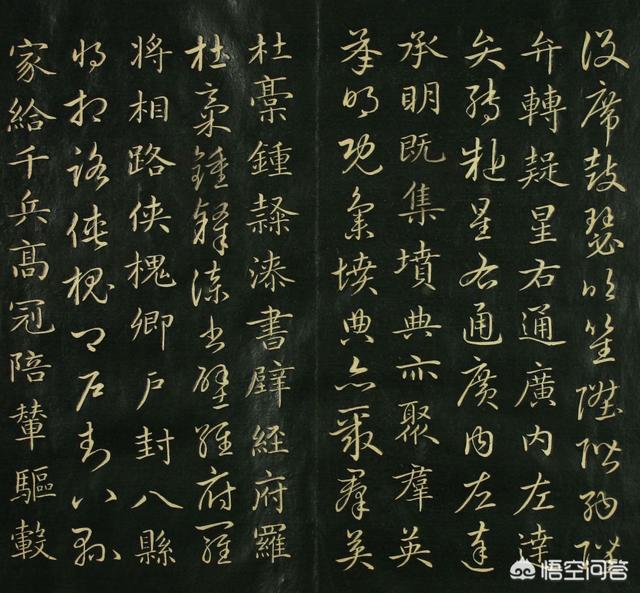 設席鼓瑟吹笙陞階納陛
弁轉疑星右通廣内左達
弁轉疑星右通廣内左達
承明既集墳典亦聚羣英
承明既集墳典亦聚羣英
杜稾鍾隸漆書壁經府羅
杜稾鍾隸漆書壁經府羅
將相路俠槐卿戶封八縣
將相路俠槐卿戶封八縣
家給千兵高冠陪輦驅轂
悟空问答